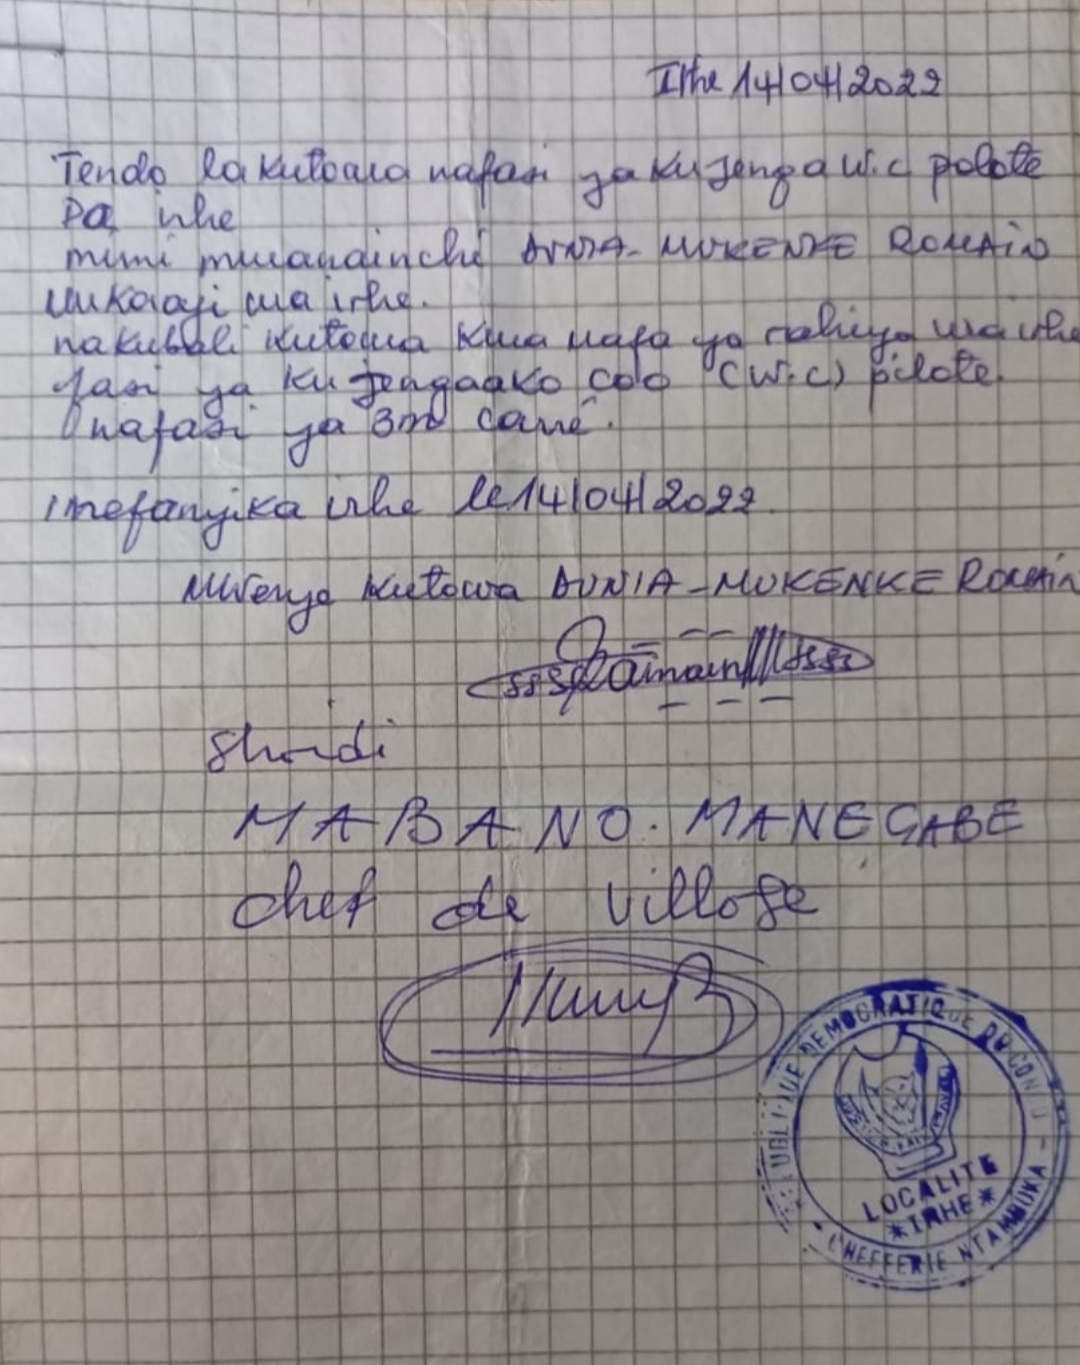 Irhe 14/04/2022
Tendo la kutowa nafasi ya kujenga w.c polote
Pa irhe
mimi muanainchi DUNIA-MUKENKE ROMAIN
Mukaaji wa irhe.
nakubali kutowa kwa mafa ya wa irhe
fasi ya ku jengaako coo (w.c) pilote.
nafasi ya 3m carré.
inefanyika irhe le 14/04/2022.
Mwenye kutowa DUNIA-MUKENKE Romain
Shaidi
MABANO. MANEGABE
chef de village
DEMOCRATIQUE DU CONGO
LOCALITE
*IRHE*
CHEFFERIE NTAMBUKA